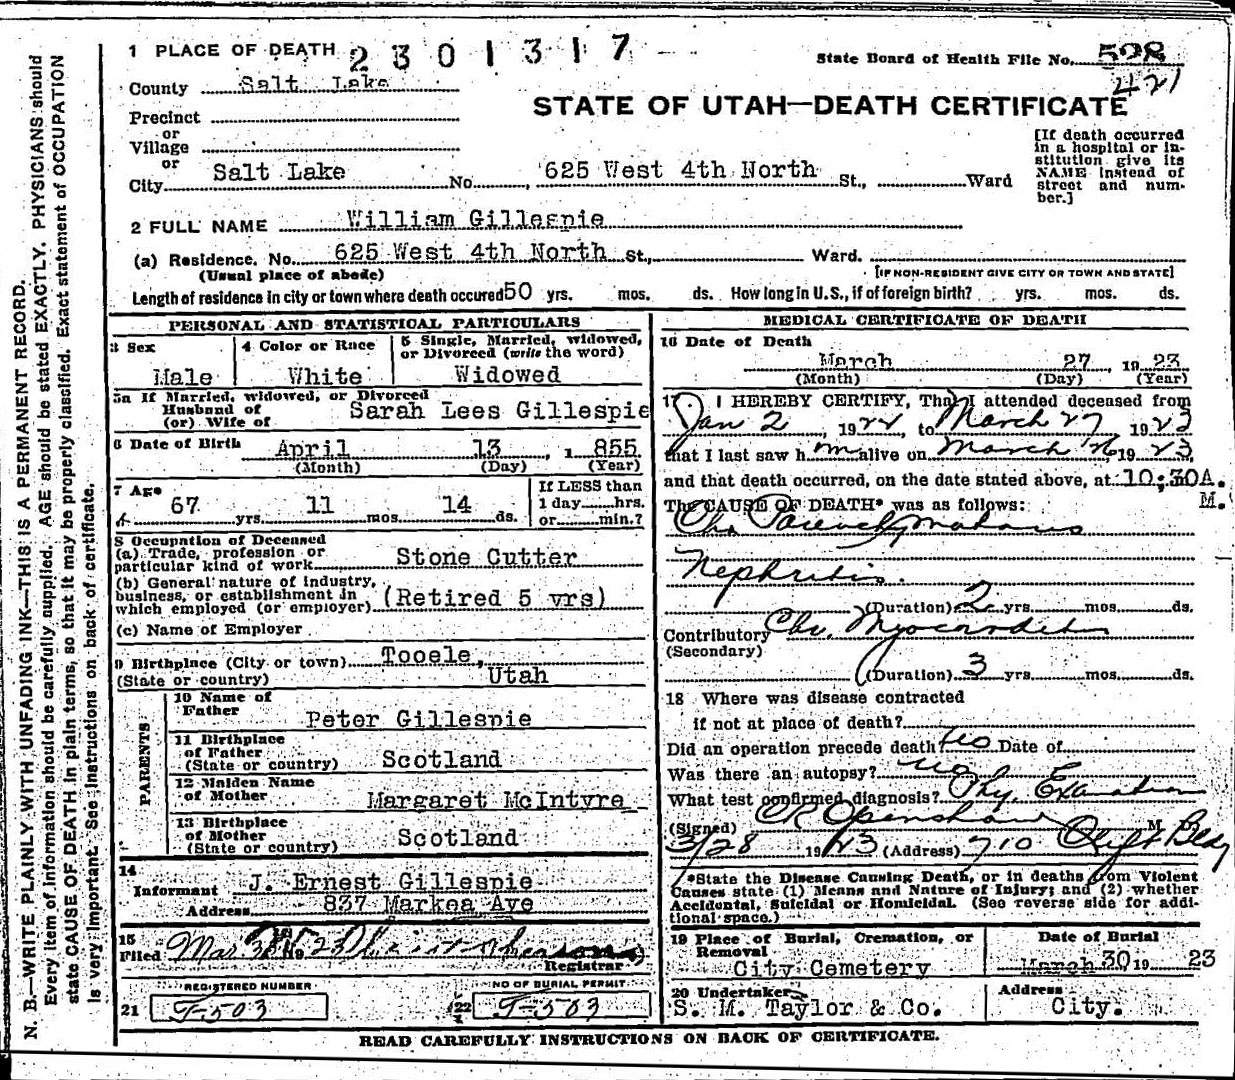 1 PLACE OF DEATH 2301317
State Board of Health File No. 528
421
County Salt Lake
STATE OF UTAH—DEATH CERTIFICATE
Precinct
or
Village
or
City Salt Lake No. 625 West 4th North St., Ward
[If death occurred in a hospital or institution give its NAME instead of street and number.]
2 FULL NAME William Gillespie
(a) Residence. No. 625 West 4th North St., Ward.
(Usual place of abode) [IF NON-RESIDENT GIVE CITY OR TOWN AND STATE]
Length of residence in city or town where death occured 50 yrs. mos. ds. How long in U.S., if of foreign birth? yrs. mos. ds.
PERSONAL AND STATISTICAL PARTICULARS
3 Sex
Male
4 Color or Race
White
5 Single, Married, widowed, or Divorced (write the word)
Widowed
5a If Married, widowed, or Divorced
Husband of
(or) Wife of Sarah Lees Gillespie
6 Date of Birth April 13, 1855
(Month) (Day) (Year)
7 Age
67 yrs. 11 mos. 14 ds.
If LESS than
1 day hrs.
or min.?
8 Occupation of Deceased
(a) Trade, profession or
particular kind of work Stone Cutter
(b) General nature of industry,
business, or establishment in
which employed (or employer) (Retired 5 yrs)
(c) Name of Employer
9 Birthplace (City or town) Tooele,
(State or country) Utah
PARENTS
10 Name of
Father Peter Gillespie
11 Birthplace
of Father
(State or country) Scotland
12 Maiden Name
of Mother Margaret McIntyre
13 Birthplace
of Mother
(State or country) Scotland
14
Informant J. Ernest Gillespie
Address 837 Markea Ave
15
Filed Mar
Registrar
REGISTERED NUMBER
21 T-503
NO OF BURIAL PERMIT
22 T-503
MEDICAL CERTIFICATE OF DEATH
16 Date of Death
March 27 1923
(Month) (Day) (Year)
17 I HEREBY CERTIFY, That I attended deceased from
Jan 2, 1922, to March 27 1923
that I last saw him alive on March 26 1923,
and that death occurred, on the date stated above, at 10:30A.
M.
The CAUSE OF DEATH* was as follows:
Chr Parenchymatous
Nephritis.
(Duration) 2 yrs. mos. ds.
Contributory Chr. Myocarditis
(Secondary)
(Duration) 3 yrs. mos. ds.
18 Where was disease contracted
if not at place of death?
Did an operation precede death? no Date of
Was there an autopsy? no
What test confirmed diagnosis? Phy. Examination
(Signed) Openshaw M
3/28 1923 (Address) 710 Clift Bldg
*State the Disease Causing Death, or in deaths from Violent
Causes state (1) Means and Nature of Injury; and (2) whether
Accidental, Suicidal or Homicidal. (See reverse side for addi-
tional space.)
19 Place of Burial, Cremation, or
Removal
City Cemetery
Date of Burial
March 30 1923
20 Undertaker
S. M. Taylor & Co.
Address
City.
READ CAREFULLY INSTRUCTIONS ON BACK OF CERTIFICATE.
N. B.—WRITE PLAINLY WITH UNFADING INK—THIS IS A PERMANENT RECORD.
Every item of information should be carefully supplied. AGE should be stated EXACTLY. PHYSICIANS should
state CAUSE OF DEATH in plain terms, so that it may be properly classified. Exact statement of OCCUPATION
is very important. See instructions on back of certificate.